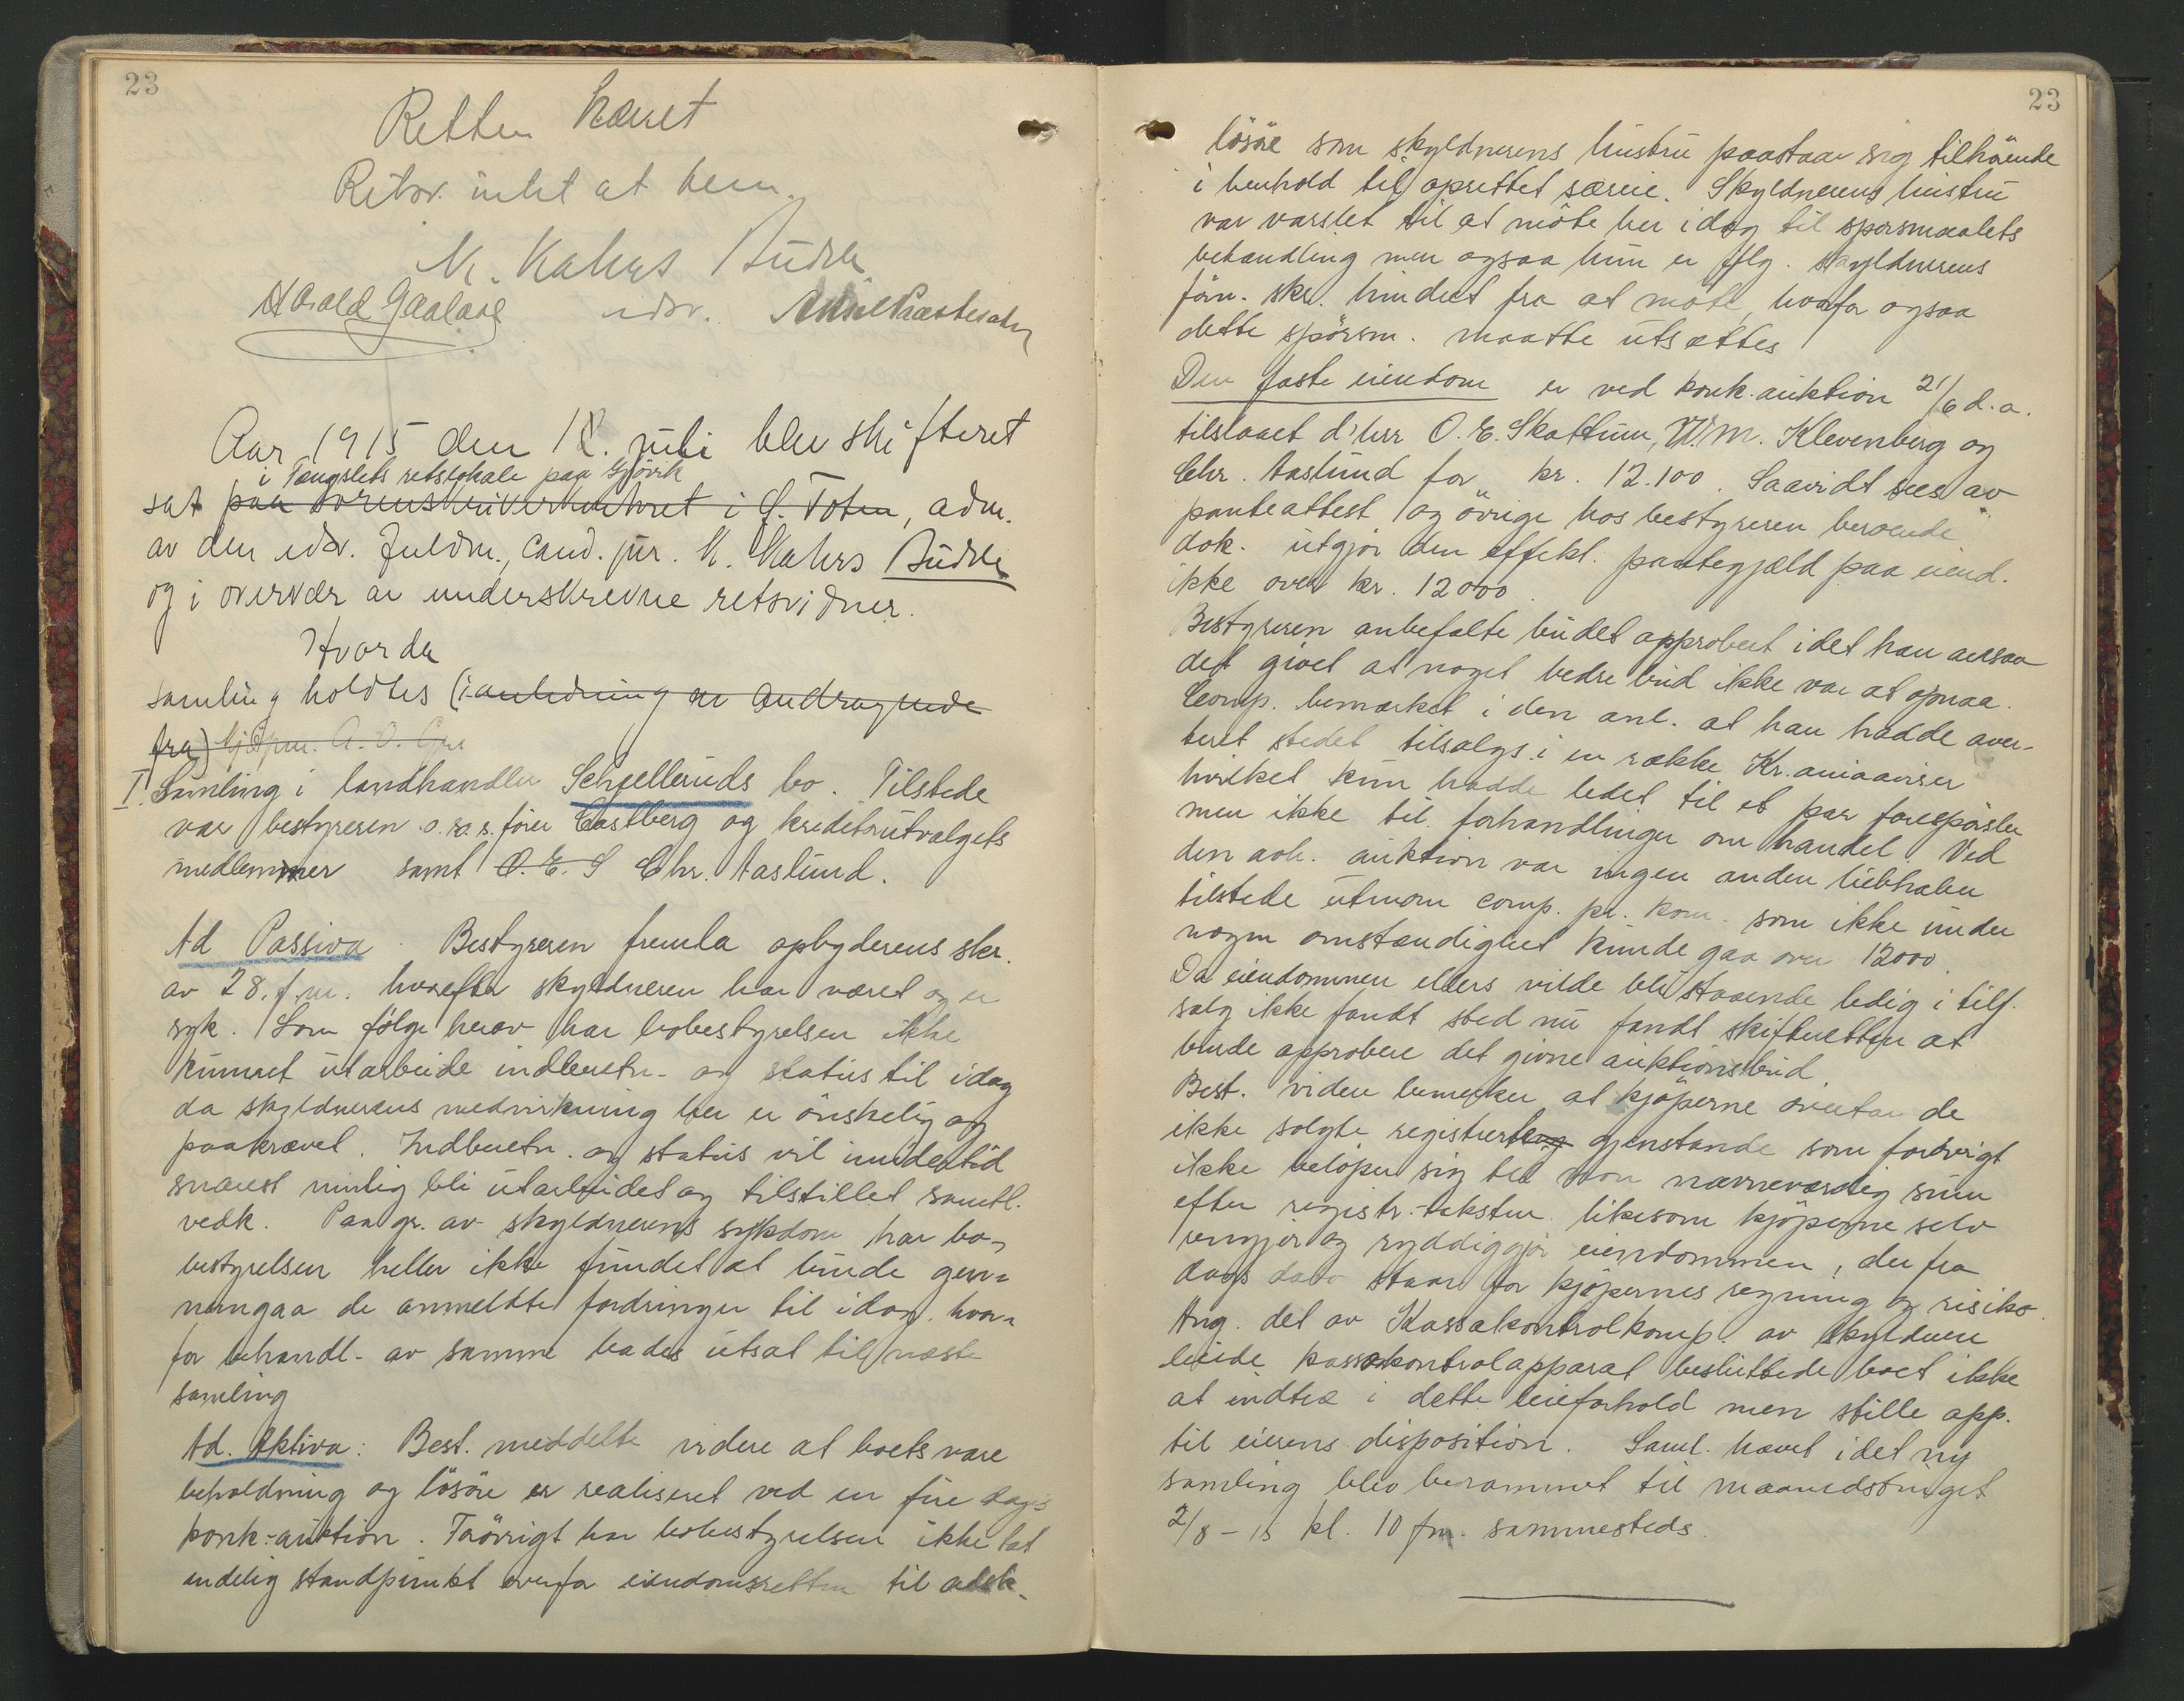 23
Retten hævet
Retsv. intet at bem.
N. Kahrs Budde
Harald Gaalaas edsv.
Aar 1915 den 12. juli blev skifteret
i Fængslets retslokale paa Gjövik
sat paa sorenskriverkontoret i Ö. Toten, adm.
av den edsv. fuldm., cand. jur. N. Kahrs Budde
og i overvær av underskrevne retsvidner.
Hvorda
samling holdtes (i anledning av andragende
fra)
I. Samling i landhandler Schjelleruds bo. Tilstede
var bestyreren o.r.s.fører Castberg og kreditorutvalgets
medlemmer samt O. E. S Chr. Aaslund.
Ad Passiva. Bestyreren fremla opbyderens skr.
av 28. f.m. hvorefter skyldneren har været og er
syk. Som følge herav har bobestyrelsen ikke
kunnet utarbeide indberetn. og status til idag
da skyldnerens medvirkning her er önskelig og
paakrævet. Indberetn. og status vil imidlertid
snarest mulig bli utarbeidet og tilstillet samtl.
vedk. Paa gr. av skyldnerens sykdom har bo-
bestyrelsen heller ikke fundet at burde gjen-
nemgaa de anmeldte fordringer til idag. hvor-
for behandl. av samme bades utsat til næste
samling
Ad. Aktiva: Best. meddelte videre at boets vare
beholdning og lösöre er realiseret ved en fire dages
konk-auktion. Forövrigt har bobestyrelsen ikke tat
endelig standpunkt overfor eiendomsretten til adsk-
23
lösöre som skyldnerens hustru paastaar sig tilhörende
i henhold til oprettet særeie. Skyldnerens hustru
var varslet til at möte her idag til spørsmaalets
behandling men ogsaa hun er iflg. skyldnerens
förn. skr. hindret fra at möte, hvorfor ogsaa
dette spörsm. maatte utsættes
Den faste eiendom er ved konk.auktion 21/6 d.a.
tilslaaet d'hrr O. E. Skattum, W. M. Klevenberg og
Chr. Aaslund for kr. 12.100. Saavidt sees av
panteattest og övrige hos bestyreren beroende
dok. utgjör den effekt. pantegjæld paa eiend.
ikke over kr. 12000.
Bestyreren anbefalte budet approbert idet han ansaa
det givet at noget bedre bud ikke var at opnaa.
Comp. bemærket i den anl. at han hadde aver-
teret stedet tilsalgs i en række Kr.aniaaviser
hvilket kun hadde ledet til et par forespörsler
men ikke til forhandlinger om handel. Ved
den avh. auktion var ingen anden liebhaber
tilstede utenom comp. pr. kom. som ikke under
nogen omstændighet kunde gaa over 12000.
Da eiendommen ellers vilde bli staaende ledig i tilf.
salg ikke fandt sted nu fandt skifteretten at
burde approbere det givne auktionsbud.
Best. videre bemerker at kjöperne overtar de
ikke solgte registrerte gjenstande som forövrigt
ikke belöper sig til non nævneværdig sum
efter registr.-taksten. likesom kjöperne selv
rengjör og ryddiggjör eiendommen, der fra
dags dato staar for kjöpernes regning og risiko.
Ang. det av Kassakontrolkomp. av skyldneren
leiede kassakontrolapparat besluttede boet ikke
at indtræ i dette leieforhold men stille app.
til eierens disposition. Saml. hævet idet ny
samling blev berammet til maanedstinget
2/8 - 15 kl. 10 fm. sammesteds.